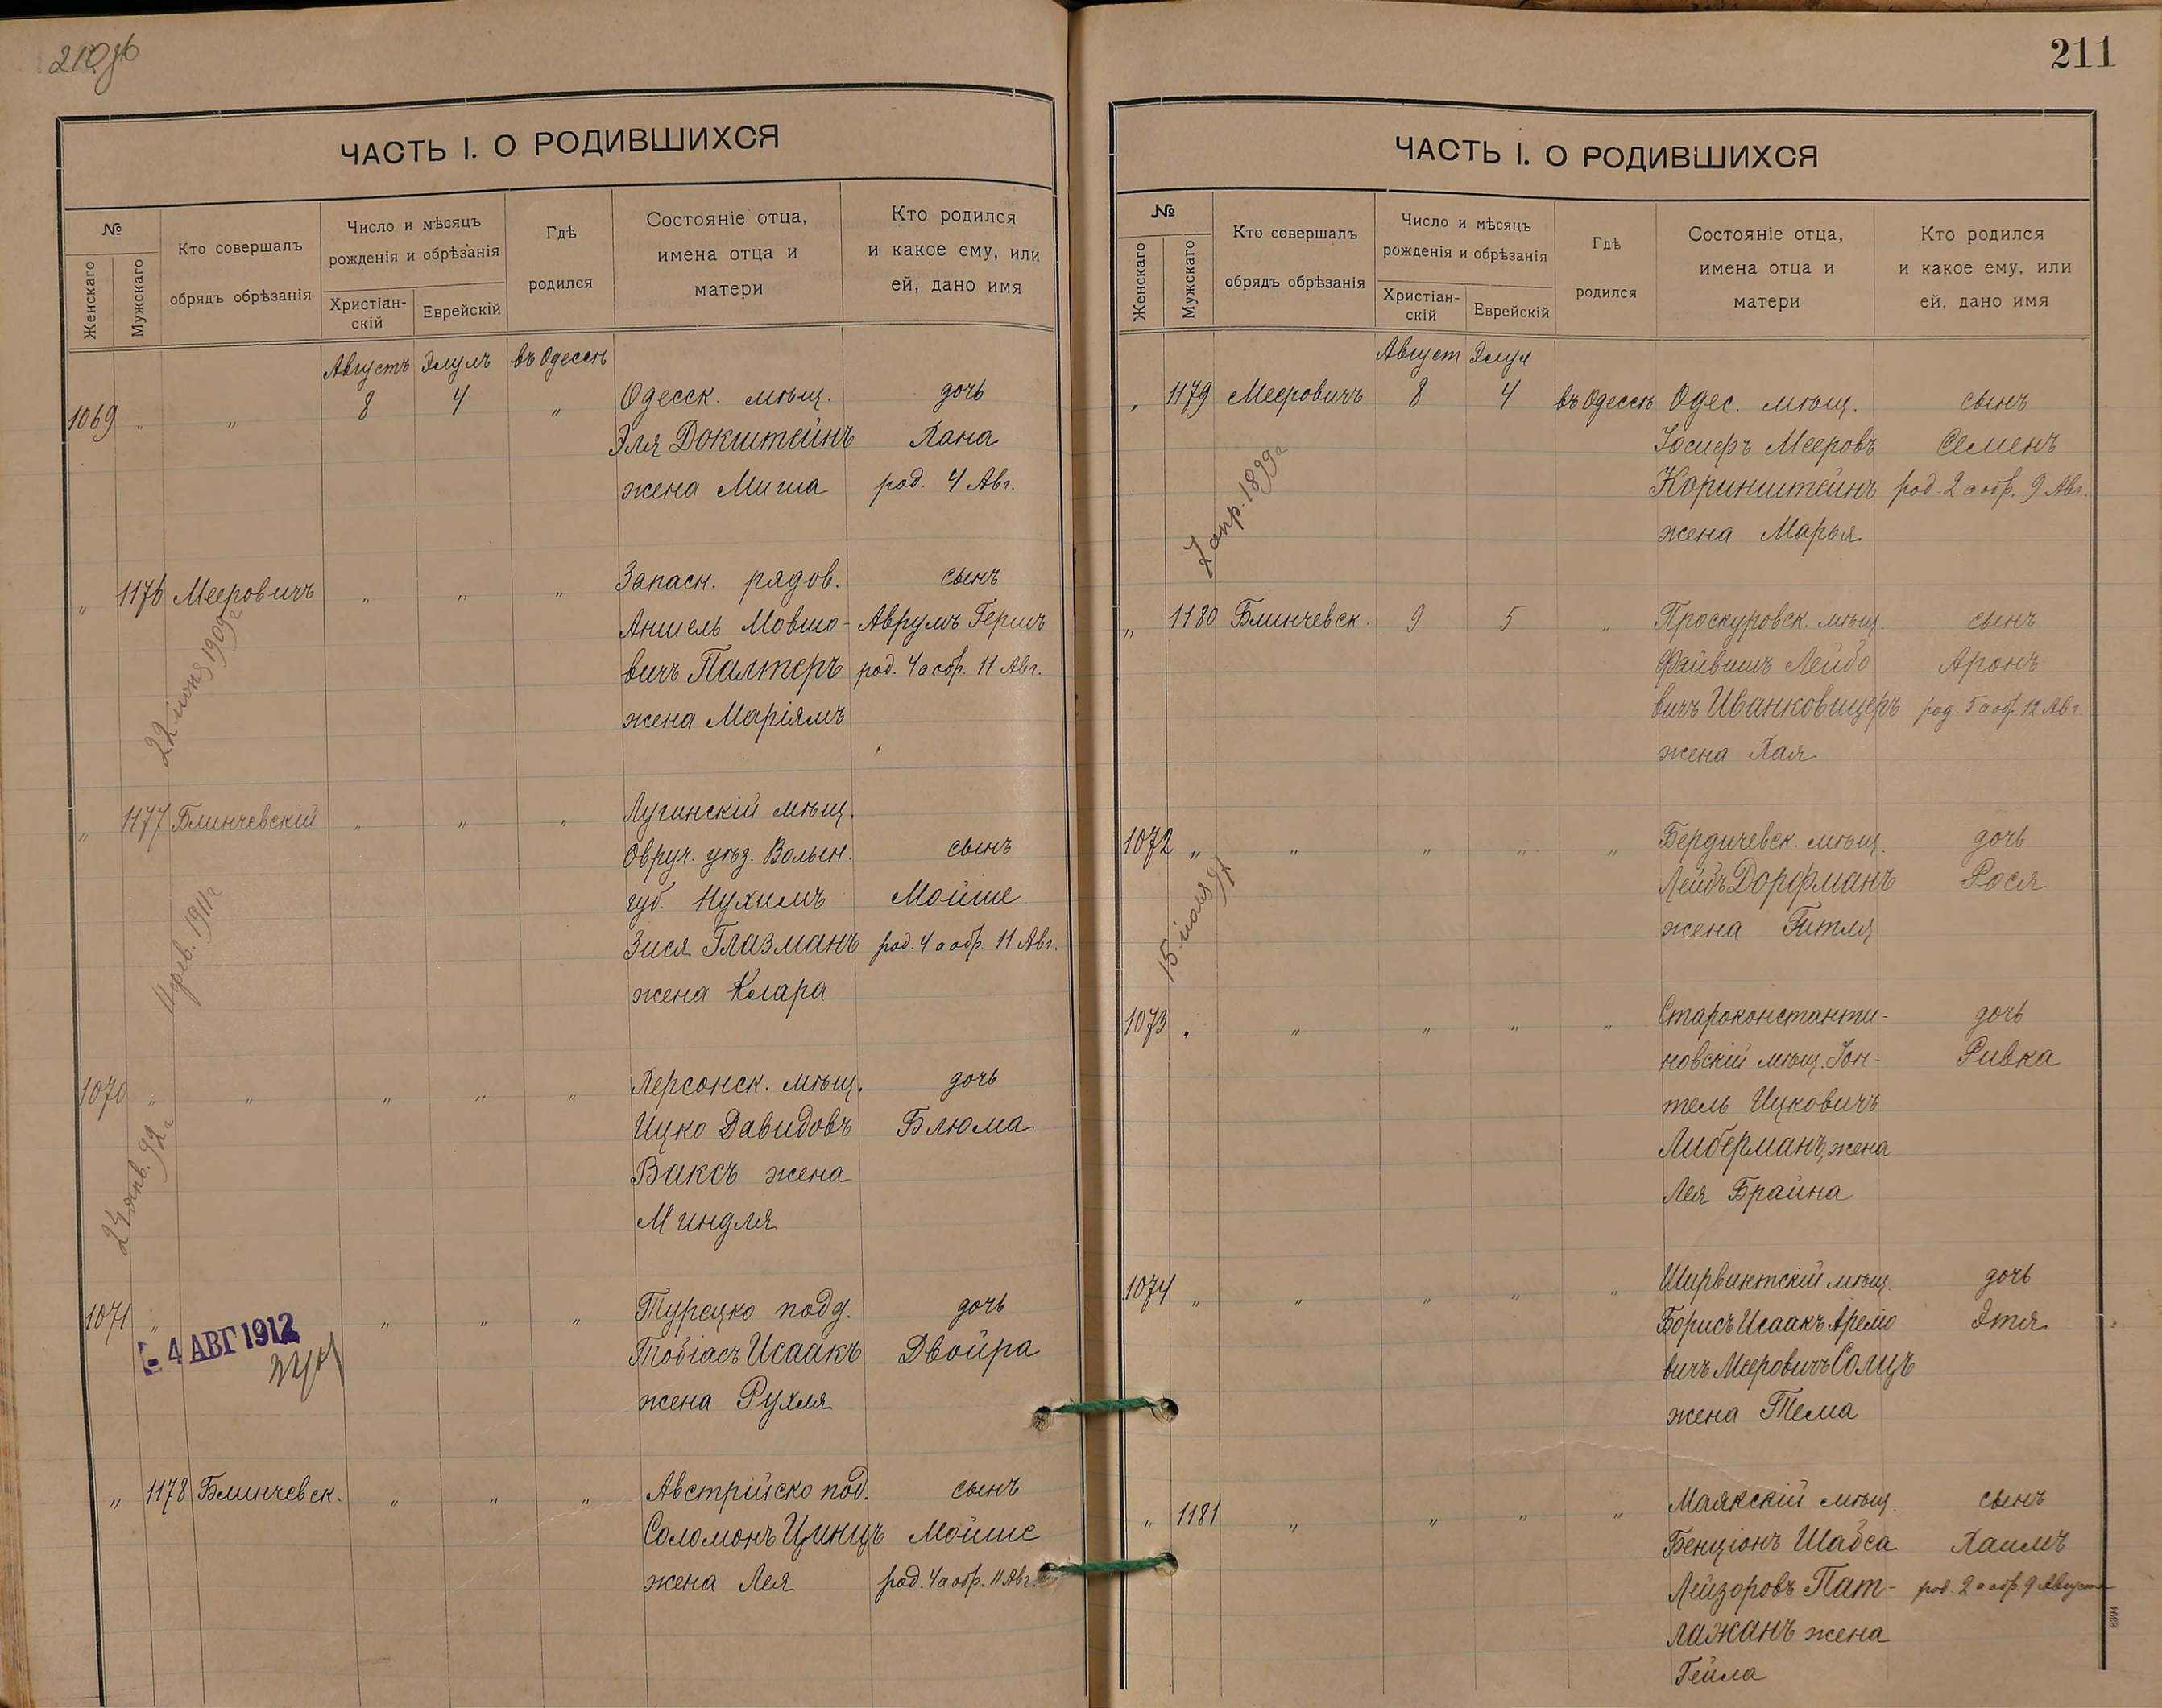 210 об
ЧАСТЬ I. О РОДИВШИХСЯ
№
Женскаго
Мужскаго
Кто совершалъ
обрядъ обрѣзанія
Число и мѣсяцъ
рожденія и обрѣзанія
Христіан-
скій
Еврейскій
Гдѣ
родился
Состояніе отца,
имена отца и
матери
Кто родился
и какое ему, или
ей, дано имя
Августъ Элулъ въ Одессѣ
1069 " " 8 4 " Одесск. мѣщ. дочь
Эля Докштейнъ Хана
жена Миша род. 4 Авг.
" 1176 Мееровичъ " " " Запасн. рядов. сынъ
Аншель Мовшо- Аврумъ Гершъ
вичъ Палтеръ род. 4 а обр. 11 Авг.
жена Маріямъ
22 іюня 1905 г
" 1177 Блинчевскій " " " Лугинскій мѣщ.
Овруч. уѣз. Волын. сынъ
губ. Нухимъ Мойше
Зися Глазманъ род. 4 а обр. 11 Авг.
жена Клара
11 фев. 1911 г
1070 " " " " " Херсонск. мѣщ. дочь
Ицко Давидовъ Блюма
Ваксъ жена
Миндля
24 янв. 92 г
1071 " " " " Турецко подд. дочь
Тобіасъ Исаакъ Двойра
жена Рухля
- 4 АВГ 1912
" 1178 Блинчевск. " " " Австрійско под. сынъ
Соломонъ Цинцъ Мойше
жена Лея род. 4 а обр. 11 Авг.
211
ЧАСТЬ I. О РОДИВШИХСЯ
№
Женскаго
Мужскаго
Кто совершалъ
обрядъ обрѣзанія
Число и мѣсяцъ
рожденія и обрѣзанія
Христіан-
скій
Еврейскій
Гдѣ
родился
Состояніе отца,
имена отца и
матери
Кто родился
и какое ему, или
ей, дано имя
Август Элул
" 1179 Мееровичъ 8 4 въ Одессѣ Одес. мѣщ. сынъ
Іосифъ Мееровъ Семенъ
Коринштейнъ род. 2 а обр. 9 Авг.
жена Марья
апр. 1899 г
" 1180 Блинчевск. 9 5 " Проскуровск. мѣщ. сынъ
Файвишъ Лейбо Аронъ
вичъ Иванковицеръ род. 5 а обр. 12 Авг.
жена Хая
1072 " " " " " Бердичевск. мѣщ. дочь
Лейбъ Дорфманъ Рося
жена Гитля
15 іюля 97
1073 " " " " " Староконстанти- дочь
новскій мѣщ. Іон- Ривка
тель Ицковичъ
Либерманъ, жена
Лея Брайна
1074 " " " " " Ширвинтскій мѣщ. дочь
Борисъ Исаакъ Арелю Этя
вичъ Мееровичъ Солцъ
жена Тема
" 1181 " " " " Маякскій мѣщ. сынъ
Бенціонъ Шабса Хаимъ
Лейзоровъ Пат- род. 2 а обр. 9 Августа
лажанъ жена
Гейла